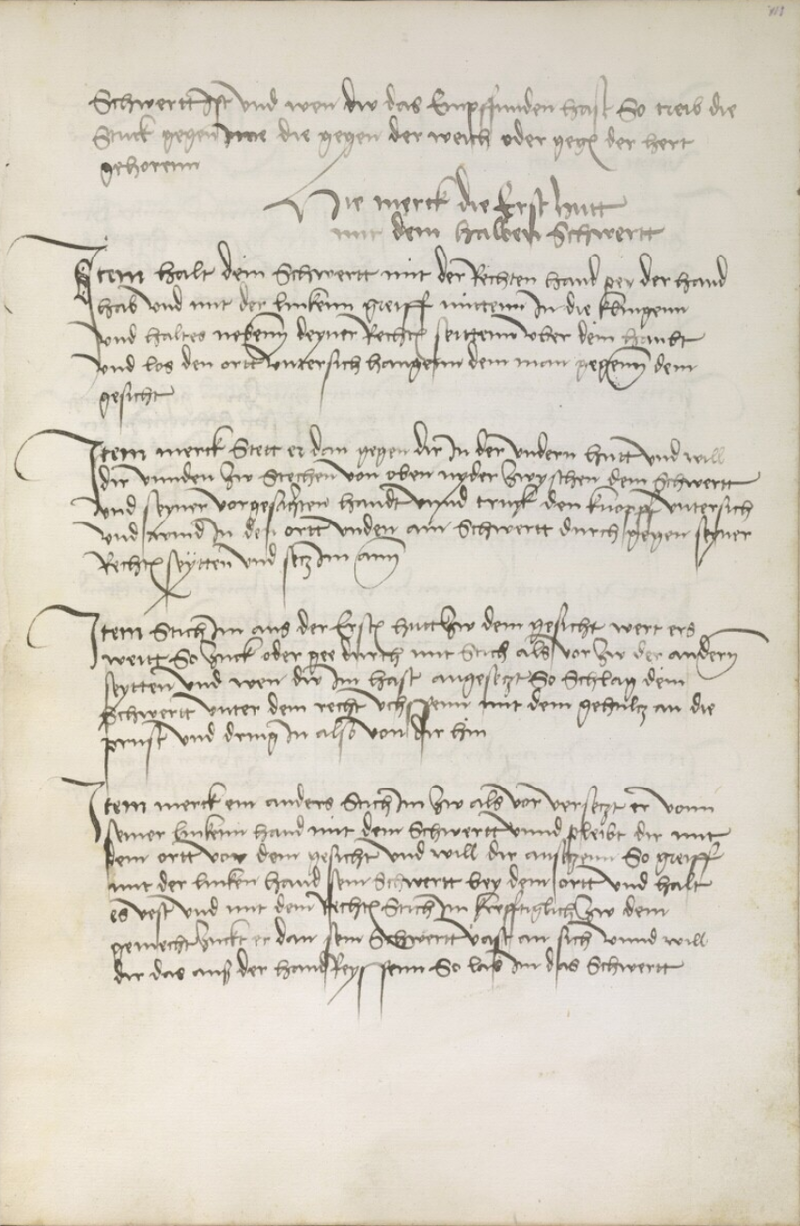 Schwertt Ist vnd wen dw das Empffunden hast So treib die
Stuck gegen Ime die gegen der weich oder gegen der hert
gehorenn
Hie merck die Erst hutt
mit dem halben Schwertt
Item halt dein Schwertt mit der Rechten hand pey der hand
hab vnd mit der linkenn greiff mittenn In die klingenn
vnd haltes nebenn deyner Rechten seittenn vber dein haubt
vnd los den ortt vntersich hangenn dem man gegenn dem
gesicht
Item merck Stett er dan gegen dir In der vndern hutt vnd will
dir vnnden zw Stechen von oben nyder zwyschen dem Schwertt
vnd seyner vorgesatzten handt vnnd truck den knopff vntersich
vnd wind In den ortt vnden am Schwertt durch gegen seyner
Rechten seytten vnd setz Im ann
Item Stich Im aus der Ersten hutt zw dem gesicht wert ers
weitt So zuck oder gee durch mit Stich als vor zw der andern
seytten vnd wen dw Im hast angesetzt So Schlag dein
Schwertt vnter dem recht vchssenn mit dem gehultz an die
prust vnd dring In also von dir hin
Item merck ein anders Stich Im zw als vor versetzt er vonn
seiner linkenn hand mit dem Schwertt vnnd pleibt dir mit
dem ortt vor dem gesicht vnd will dir ansetzenn So greiff
mit der linken hand sein Schwertt bey dem ortt vnd halt
es vest vnd mit dem rechten Stich Im krefftiglich zw dem
gemecht zuckt er dan sein Schwertt vast an sich vnnd will
dir das aus der hand Reyssenn So las Im das Schwertt